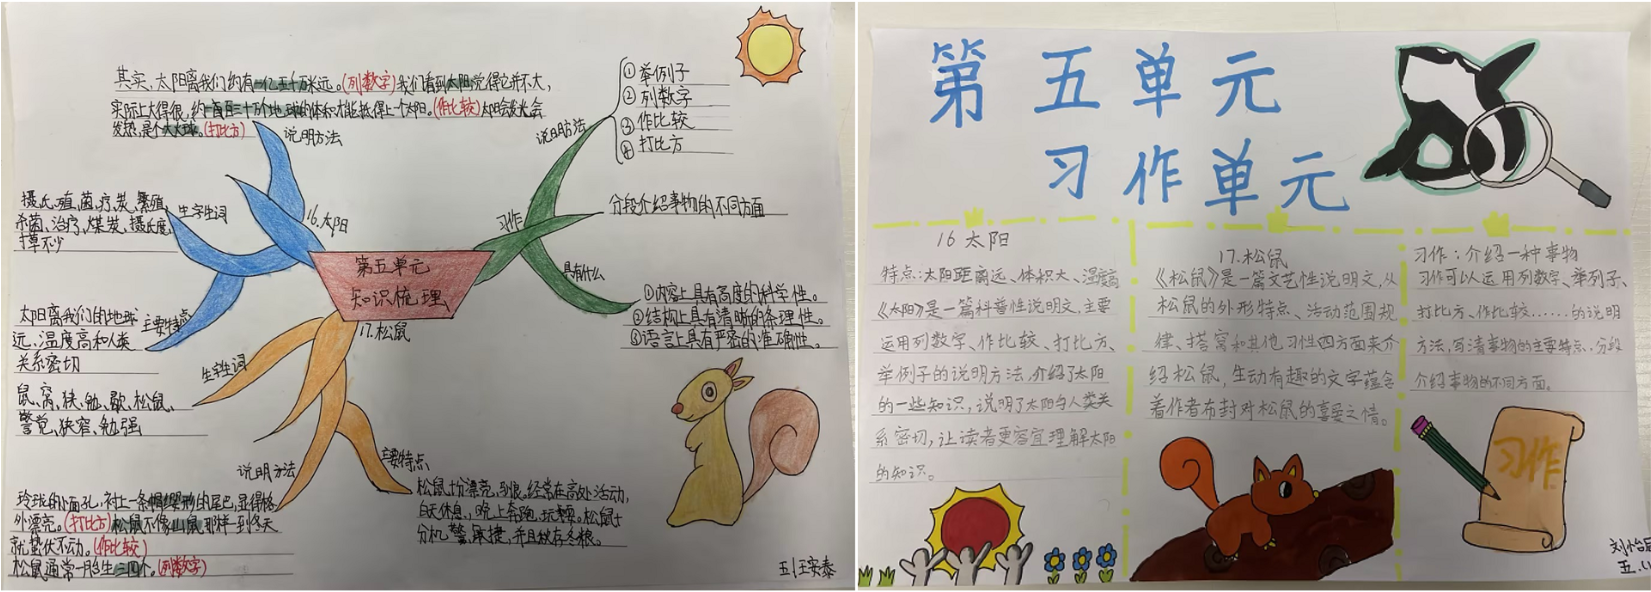 其实,太阳离我们约有一亿五千万米远。(列数字)我们看到太阳觉得它并不大,
实际上大得很,约一百三十万个地球的体积才能抵得上一个太阳。(作比较)太阳会发光会
发热,是个大火球。(打比方)
说明方法
16.太阳
摄、氏、殖、菌、疗、炭、繁殖、
杀菌、治疗、煤炭、摄氏度、
寸草不少
生字生词
太阳离我们的地球
远、温度高和人类
关系密切
主要特点
第五单元
知识梳理
说明方法
①举例子
②列数字
③作比较
④打比方
习作
分段介绍事物的不同方面
具有什么
①内容上具有高度的科学性。
②结构上具有清晰的条理性。
③语言上具有严密的准确性。
17.松鼠
生字生词
鼠、窝、狭、勉、歇、松鼠、
警觉、狭窄、勉强
说明方法
玲珑的小面孔,衬上一条帽缨形的尾巴,显得格
外漂亮。(打比方)松鼠不像山鼠那样一到冬天
就蛰伏不动。(作比较)
松鼠通常一胎生三四个。(列数字)
主要特点
松鼠十分漂亮,驯良。经常在高处活动,
白天休息,晚上奔跑、玩耍。松鼠十
分机警、敏捷,并且秋存冬粮。
五.1
第五单元
习作单元
16 太阳
特点:太阳距离远、体积大、温度高
《太阳》是一篇科普性说明文,主要
运用列数字、作比较、打比方、
举例子的说明方法,介绍了太阳
的一些知识,说明了太阳与人类关
系密切,让读者更容宜理解太阳
的知识。
17.松鼠
《松鼠》是一篇文艺性说明文,从
松鼠的外形特点、活动范围规
律、搭窝和其他习性四方面来介
绍松鼠,生动有趣的文字蕴含
着作者布封对松鼠的喜爱之情。
习作:介绍一种事物
习作可以运用列数字、举列子、
打比方、作比较……的说明
方法,写清事物的主要特点,分段
介绍事物的不同方面。
习作
刘怡
五.